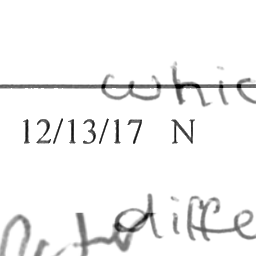 whic
12/13/17 N
diffe